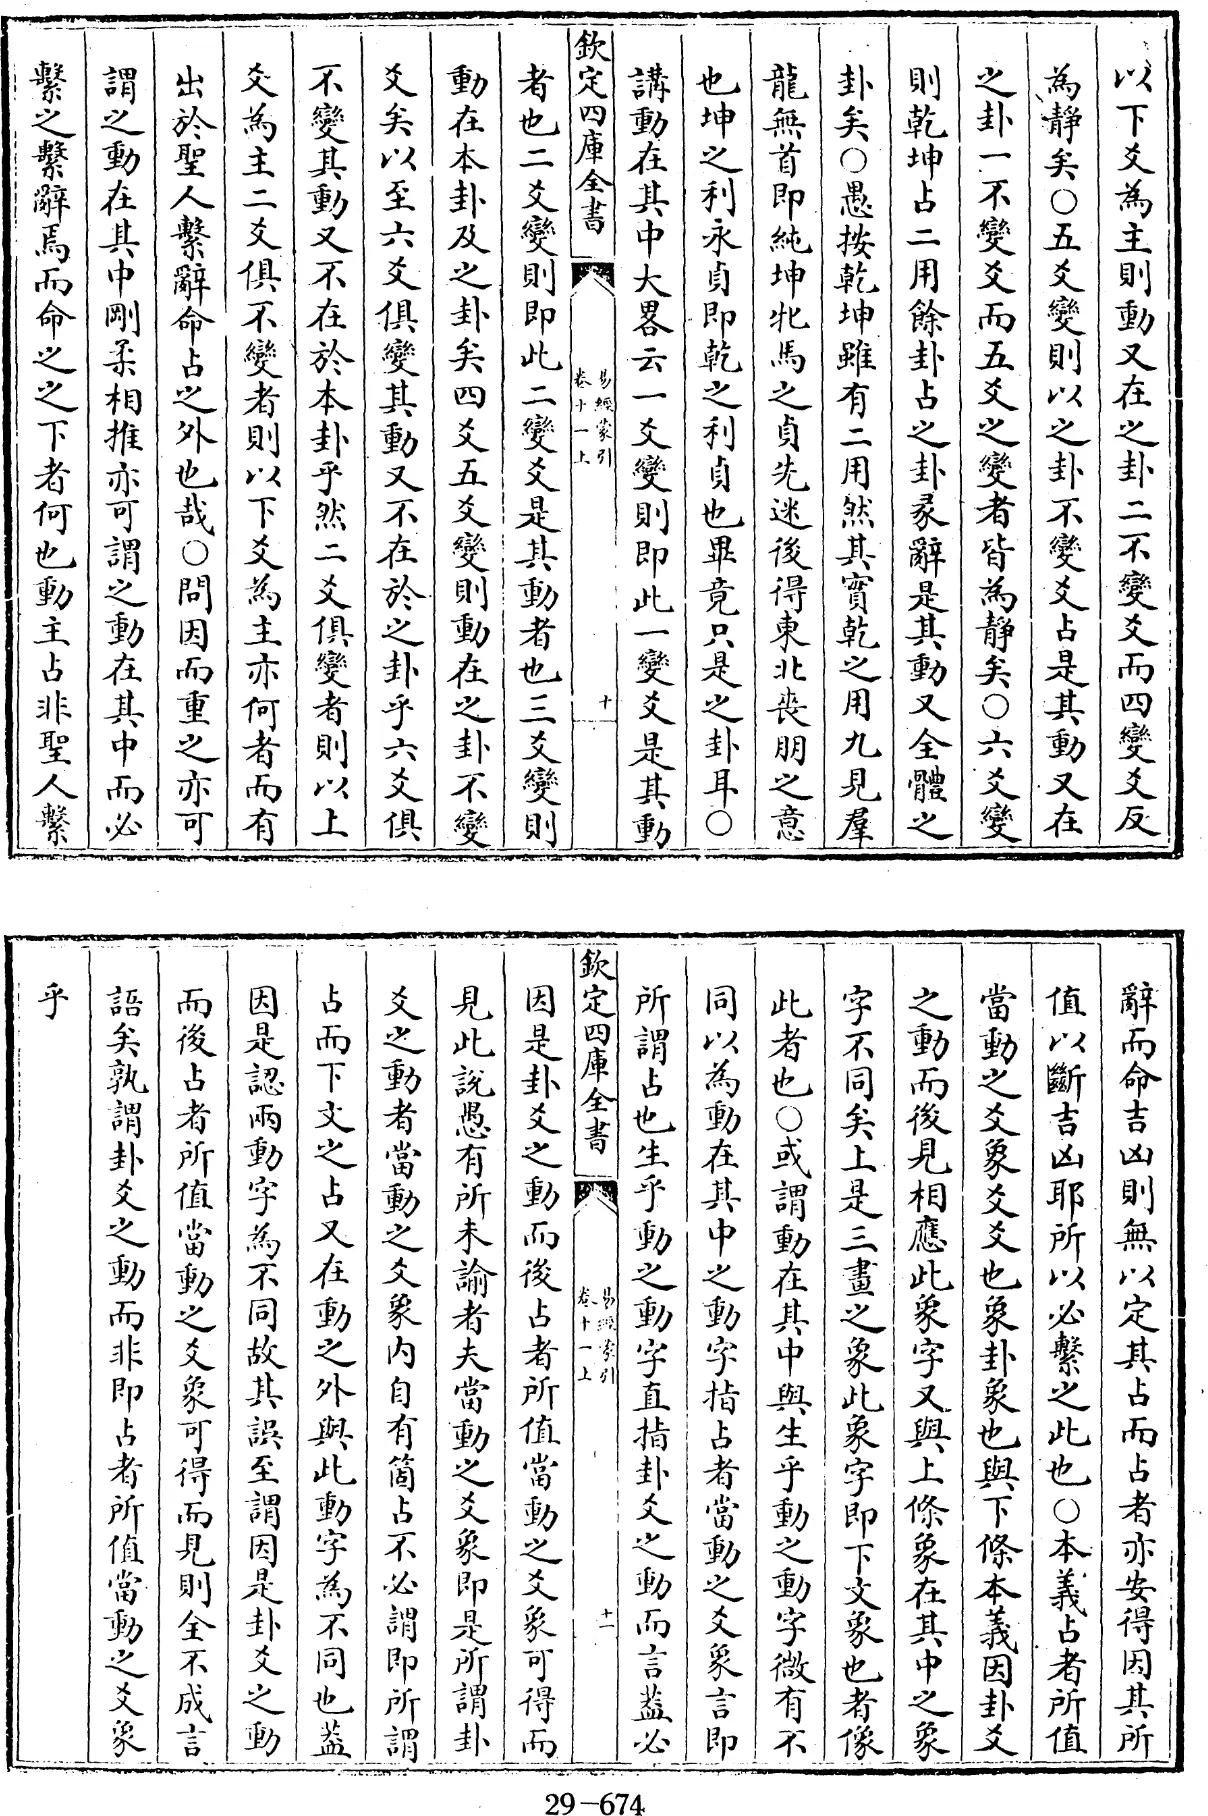 以下爻為主則動又在之卦二不變爻而四變爻反
為靜矣○五爻變則以之卦不變爻占是其動又在
之卦一不變爻而五爻之變者皆為靜矣○六爻變
則乾坤占二用餘卦占之卦彖辭是其動又全體之
卦矣○愚按乾坤雖有二用然其實乾之用九見羣
龍無首即純坤牝馬之貞先迷後得東北喪朋之意
也坤之利永貞即乾之利貞也畢竟只是之卦耳○
講動在其中大畧云一爻變則即此一變爻是其動
欽定四庫全書
易經蒙引
卷十一上
十
者也二爻變則即此二變爻是其動者也三爻變則
動在本卦及之卦矣四爻五爻變則動在之卦不變
爻矣以至六爻俱變其動又不在於之卦乎六爻俱
不變其動又不在於本卦乎然二爻俱變者則以上
爻為主二爻俱不變者則以下爻為主亦何者而有
出於聖人繫辭命占之外也哉○問因而重之亦可
謂之動在其中剛柔相推亦可謂之動在其中而必
繫之繫辭焉而命之之下者何也動主占非聖人繫
辭而命吉凶則無以定其占而占者亦安得因其所
值以斷吉凶耶所以必繫之此也○本義占者所值
當動之爻象爻爻也象卦象也與下條本義因卦爻
之動而後見相應此象字又與上條象在其中之象
字不同矣上是三畫之象此象字即下文象也者像
此者也○或謂動在其中與生乎動之動字微有不
同以為動在其中之動字指占者當動之爻象言即
所謂占也生乎動之動字直指卦爻之動而言蓋必
欽定四庫全書
易經蒙引
卷十一上
十一
因是卦爻之動而後占者所值當動之爻象可得而
見此說愚有所未諭者夫當動之爻象即是所謂卦
爻之動者當動之爻象内自有箇占不必謂即所謂
占而下文之占又在動之外與此動字為不同也蓋
因是認兩動字為不同故其誤至謂因是卦爻之動
而後占者所值當動之爻象可得而見則全不成言
語矣孰謂卦爻之動而非即占者所值當動之爻象
乎
29-674